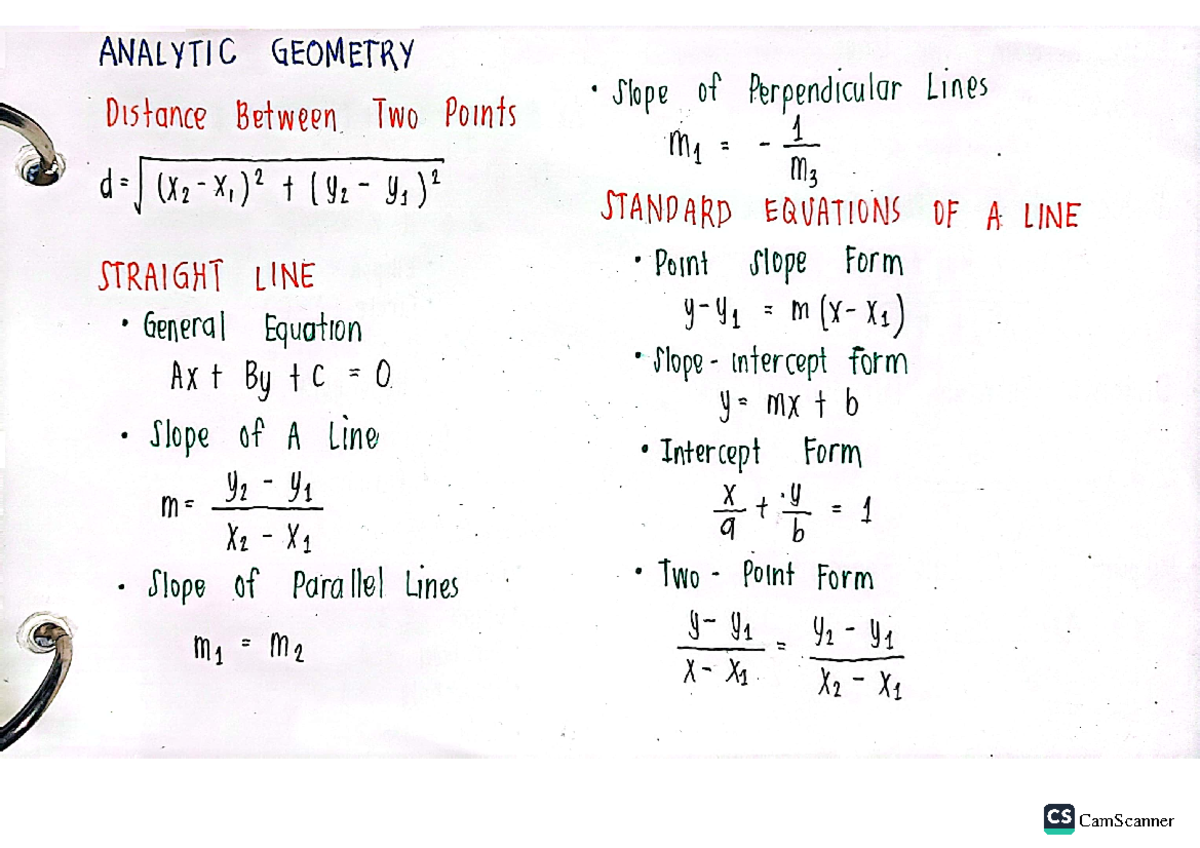 ANALYTIC GEOMETRY
Distance Between Two Points
d = √(x₂ - x₁)² + (y₂ - y₁)²
STRAIGHT LINE
• General Equation
Ax + By + C = 0
• Slope of A Line
m = y₂ - y₁ / x₂ - x₁
• Slope of Parallel Lines
m₁ = m₂
• Slope of Perpendicular Lines
m₁ = - 1 / m₃
STANDARD EQUATIONS OF A LINE
• Point Slope Form
y - y₁ = m (x - x₁)
• Slope - intercept form
y = mx + b
• Intercept Form
x / a + y / b = 1
• Two - Point Form
y - y₁ / x - x₁ = y₂ - y₁ / x₂ - x₁
CS CamScanner